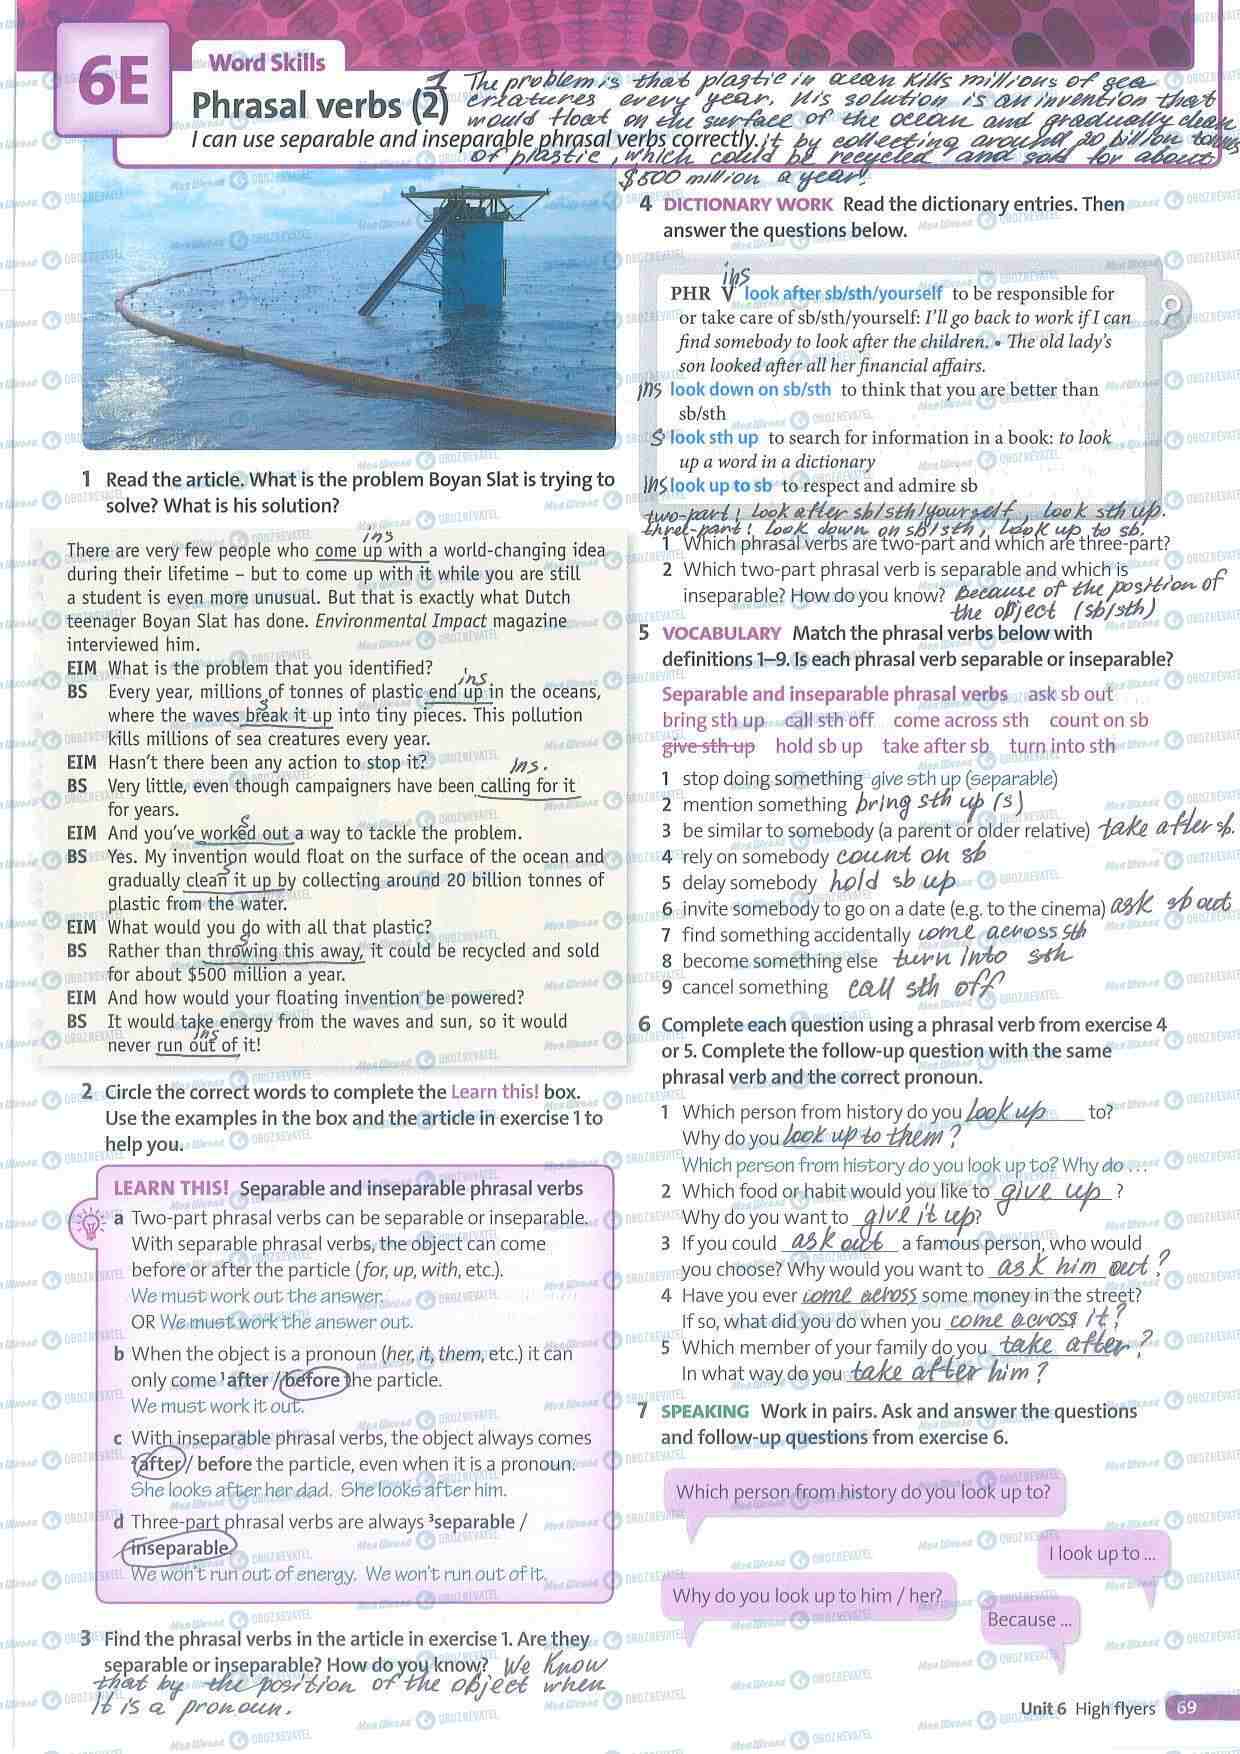 6E
Word Skills
Phrasal verbs (2)
I can use separable and inseparable phrasal verbs correctly.
1 The problem is that plastic in ocean kills millions of sea
creatures every year. His solution is an invention that
would float on the surface of the ocean and gradually clean
it by collecting around 20 billion tonnes
of plastic, which could be recycled and sold for about
$500 million a year.
1 Read the article. What is the problem Boyan Slat is trying to
solve? What is his solution?
ins
There are very few people who come up with a world-changing idea
during their lifetime – but to come up with it while you are still
a student is even more unusual. But that is exactly what Dutch
teenager Boyan Slat has done. Environmental Impact magazine
interviewed him.
EIM What is the problem that you identified?
ins
BS Every year, millions of tonnes of plastic end up in the oceans,
s
where the waves break it up into tiny pieces. This pollution
kills millions of sea creatures every year.
EIM Hasn't there been any action to stop it?
ins.
BS Very little, even though campaigners have been calling for it
for years.
s
EIM And you've worked out a way to tackle the problem.
BS Yes. My invention would float on the surface of the ocean and
s
gradually clean it up by collecting around 20 billion tonnes of
plastic from the water.
EIM What would you do with all that plastic?
s
BS Rather than throwing this away, it could be recycled and sold
for about $500 million a year.
EIM And how would your floating invention be powered?
BS It would take energy from the waves and sun, so it would
ins
never run out of it!
2 Circle the correct words to complete the Learn this! box.
Use the examples in the box and the article in exercise 1 to
help you.
LEARN THIS! Separable and inseparable phrasal verbs
a Two-part phrasal verbs can be separable or inseparable.
With separable phrasal verbs, the object can come
before or after the particle (for, up, with, etc.).
We must work out the answer.
OR We must work the answer out.
b When the object is a pronoun (her, it, them, etc.) it can
only come ¹after / before the particle.
We must work it out.
c With inseparable phrasal verbs, the object always comes
²after / before the particle, even when it is a pronoun.
She looks after her dad. She looks after him.
d Three-part phrasal verbs are always ³separable /
inseparable.
We won't run out of energy. We won't run out of it.
3 Find the phrasal verbs in the article in exercise 1. Are they
separable or inseparable? How do you know? We know
that by the position of the object when
it is a pronoun.
4 DICTIONARY WORK Read the dictionary entries. Then
answer the questions below.
ins
PHR V look after sb/sth/yourself to be responsible for
or take care of sb/sth/yourself: I'll go back to work if I can
find somebody to look after the children. • The old lady's
son looked after all her financial affairs.
ins look down on sb/sth to think that you are better than
sb/sth
S look sth up to search for information in a book: to look
up a word in a dictionary
ins look up to sb to respect and admire sb
two-part! look after sb/sth/yourself, look sth up.
three-part! look down on sb/sth, look up to sb.
1 Which phrasal verbs are two-part and which are three-part?
2 Which two-part phrasal verb is separable and which is
inseparable? How do you know? Because of the position of
the object (sb/sth)
5 VOCABULARY Match the phrasal verbs below with
definitions 1–9. Is each phrasal verb separable or inseparable?
Separable and inseparable phrasal verbs ask sb out
bring sth up call sth off come across sth count on sb
give sth up hold sb up take after sb turn into sth
1 stop doing something give sth up (separable)
2 mention something bring sth up (s)
3 be similar to somebody (a parent or older relative) take after sb.
4 rely on somebody count on sb
5 delay somebody hold sb up
6 invite somebody to go on a date (e.g. to the cinema) ask sb out
7 find something accidentally come across sth
8 become something else turn into sth
9 cancel something call sth off
6 Complete each question using a phrasal verb from exercise 4
or 5. Complete the follow-up question with the same
phrasal verb and the correct pronoun.
1 Which person from history do you look up to?
Why do you look up to them?
Which person from history do you look up to? Why do ...
2 Which food or habit would you like to give up ?
Why do you want to give it up?
3 If you could ask out a famous person, who would
you choose? Why would you want to ask him out?
4 Have you ever come across some money in the street?
If so, what did you do when you come across it?
5 Which member of your family do you take after?
In what way do you take after him?
7 SPEAKING Work in pairs. Ask and answer the questions
and follow-up questions from exercise 6.
Which person from history do you look up to?
I look up to ...
Why do you look up to him / her?
Because ...
Unit 6 High flyers 69